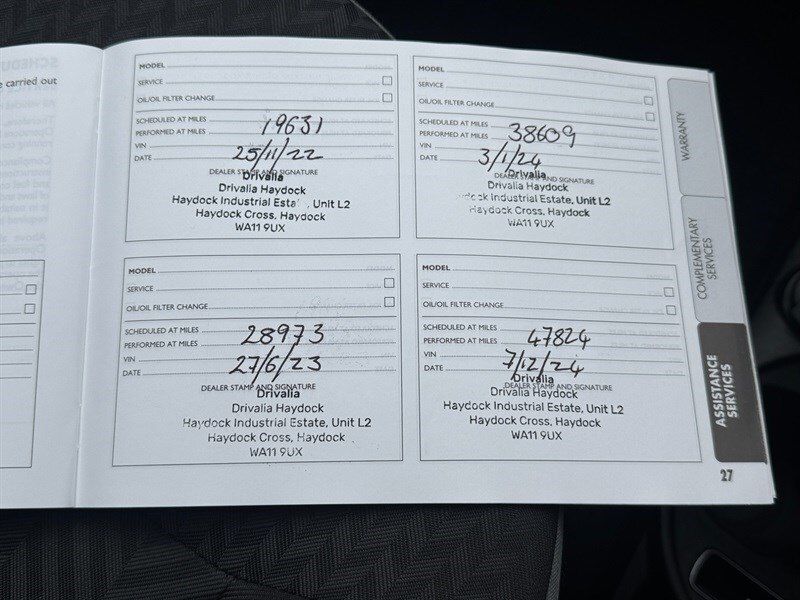 e carried out
MODEL
SERVICE
OIL/OIL FILTER CHANGE
SCHEDULED AT MILES
PERFORMED AT MILES 19631
VIN
DATE 25/11/22
DEALER STAMP AND SIGNATURE
Drivalia
Drivalia Haydock
Haydock Industrial Esta , Unit L2
Haydock Cross, Haydock
WA11 9UX
MODEL
SERVICE
OIL/OIL FILTER CHANGE
SCHEDULED AT MILES
PERFORMED AT MILES 28973
VIN
DATE 27/6/23
DEALER STAMP AND SIGNATURE
Drivalia
Drivalia Haydock
Haydock Industrial Estate, Unit L2
Haydock Cross, Haydock
WA11 9UX
MODEL
SERVICE
OIL/OIL FILTER CHANGE
SCHEDULED AT MILES
PERFORMED AT MILES 38609
VIN
DATE 3/1/24
DEALER STAMP AND SIGNATURE
Drivalia
Drivalia Haydock
Haydock Industrial Estate, Unit L2
Haydock Cross, Haydock
WA11 9UX
MODEL
SERVICE
OIL/OIL FILTER CHANGE
SCHEDULED AT MILES
PERFORMED AT MILES 47824
VIN
DATE 7/12/24
DEALER STAMP AND SIGNATURE
Drivalia
Drivalia Haydock
Haydock Industrial Estate, Unit L2
Haydock Cross, Haydock
WA11 9UX
WARRANTY
COMPLEMENTARY
SERVICES
ASSISTANCE
SERVICES
27